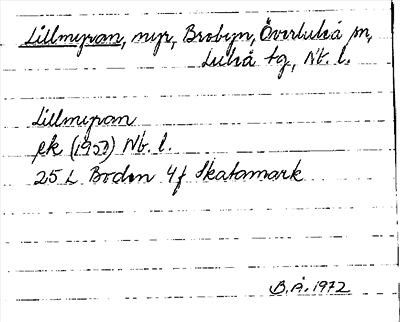 Lillmyran, myr, Brobyn, Överluleå sn,
Luleå tg, Nb. l.
Lillmyran
ek (1950) Nb. l.
25 L Boden 4f Skatamark
B.Å. 1972